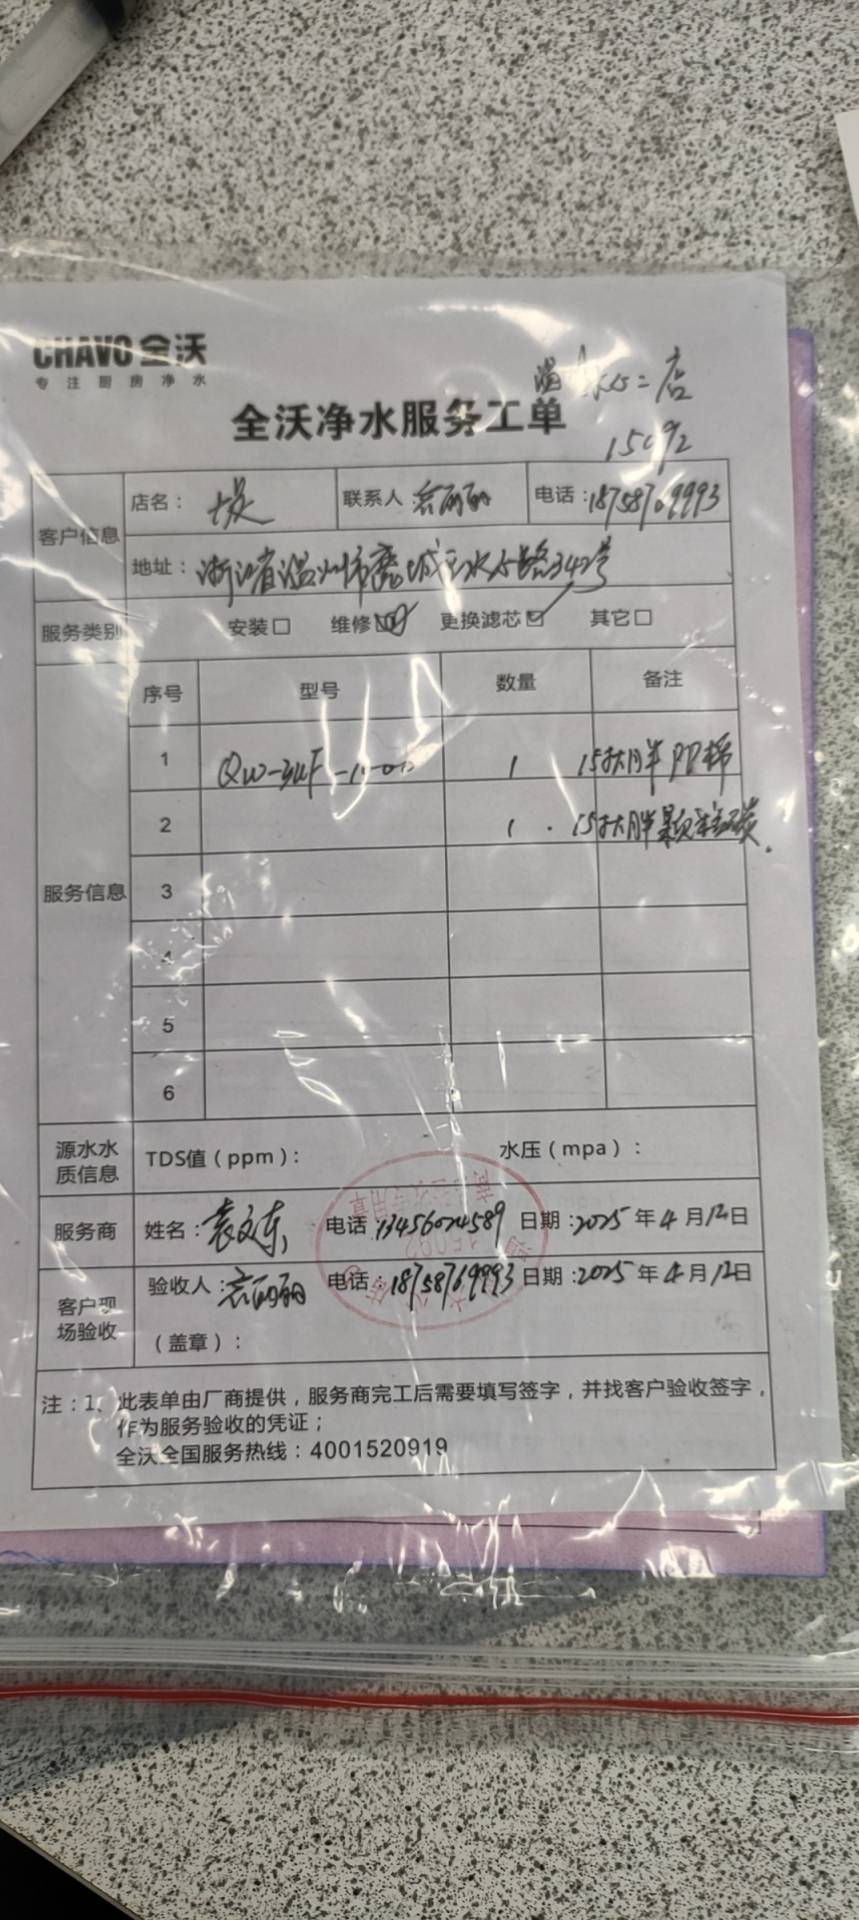 CHAVO 全沃
专注厨房净水
二店
全沃净水服务工单
15092
客户信息
店名：
联系人：袁丽丽
电话：18758769993
地址：浙江省温州市鹿城区水心路342号
服务类别
安装□ 维修 更换滤芯☑ 其它□
服务信息
序号 型号 数量 备注
1 1 15寸大胖 PP棉
2 1 15寸大胖颗粒碳
3
4
5
6
源水水质信息
TDS值（ppm）： 水压（mpa）：
服务商
姓名：袁文东 电话：13456024589 日期：2025年4月12日
客户现场验收
验收人：袁丽丽 电话：18758769993 日期：2025年4月12日
（盖章）：
注：1、此表单由厂商提供，服务商完工后需要填写签字，并找客户验收签字，
作为服务验收的凭证；
全沃全国服务热线：4001520919